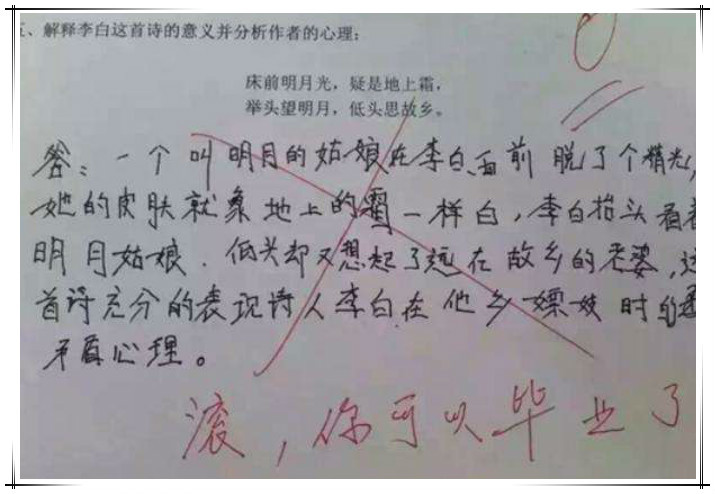 五、解释李白这首诗的意义并分析作者的心理：
床前明月光，疑是地上霜，
举头望明月，低头思故乡。
答：一个叫明月的姑娘在李白面前脱了个精光，
她的皮肤就象地上的霜一样白，李白抬头看着
明月姑娘．低头却又想起了远在故乡的老婆，这
首诗充分的表现诗人李白在他乡嫖妓时的
矛盾心理。
滚，你可以毕业了